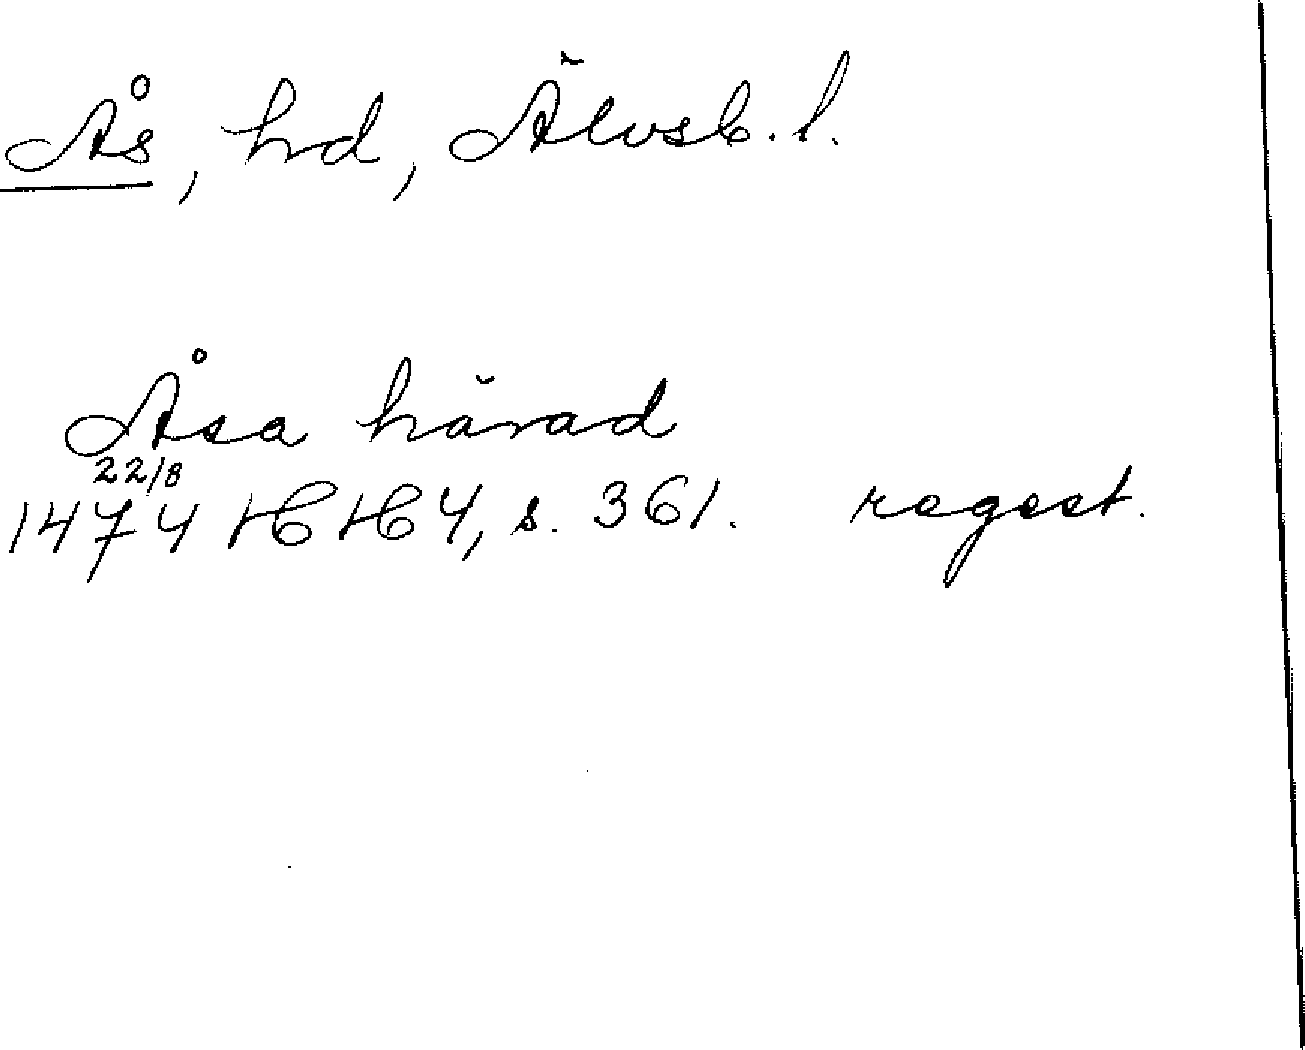 Ås, hd, Älvsb. l.
Åsa härad
22/8
1474 HH 4, s. 361. regest.